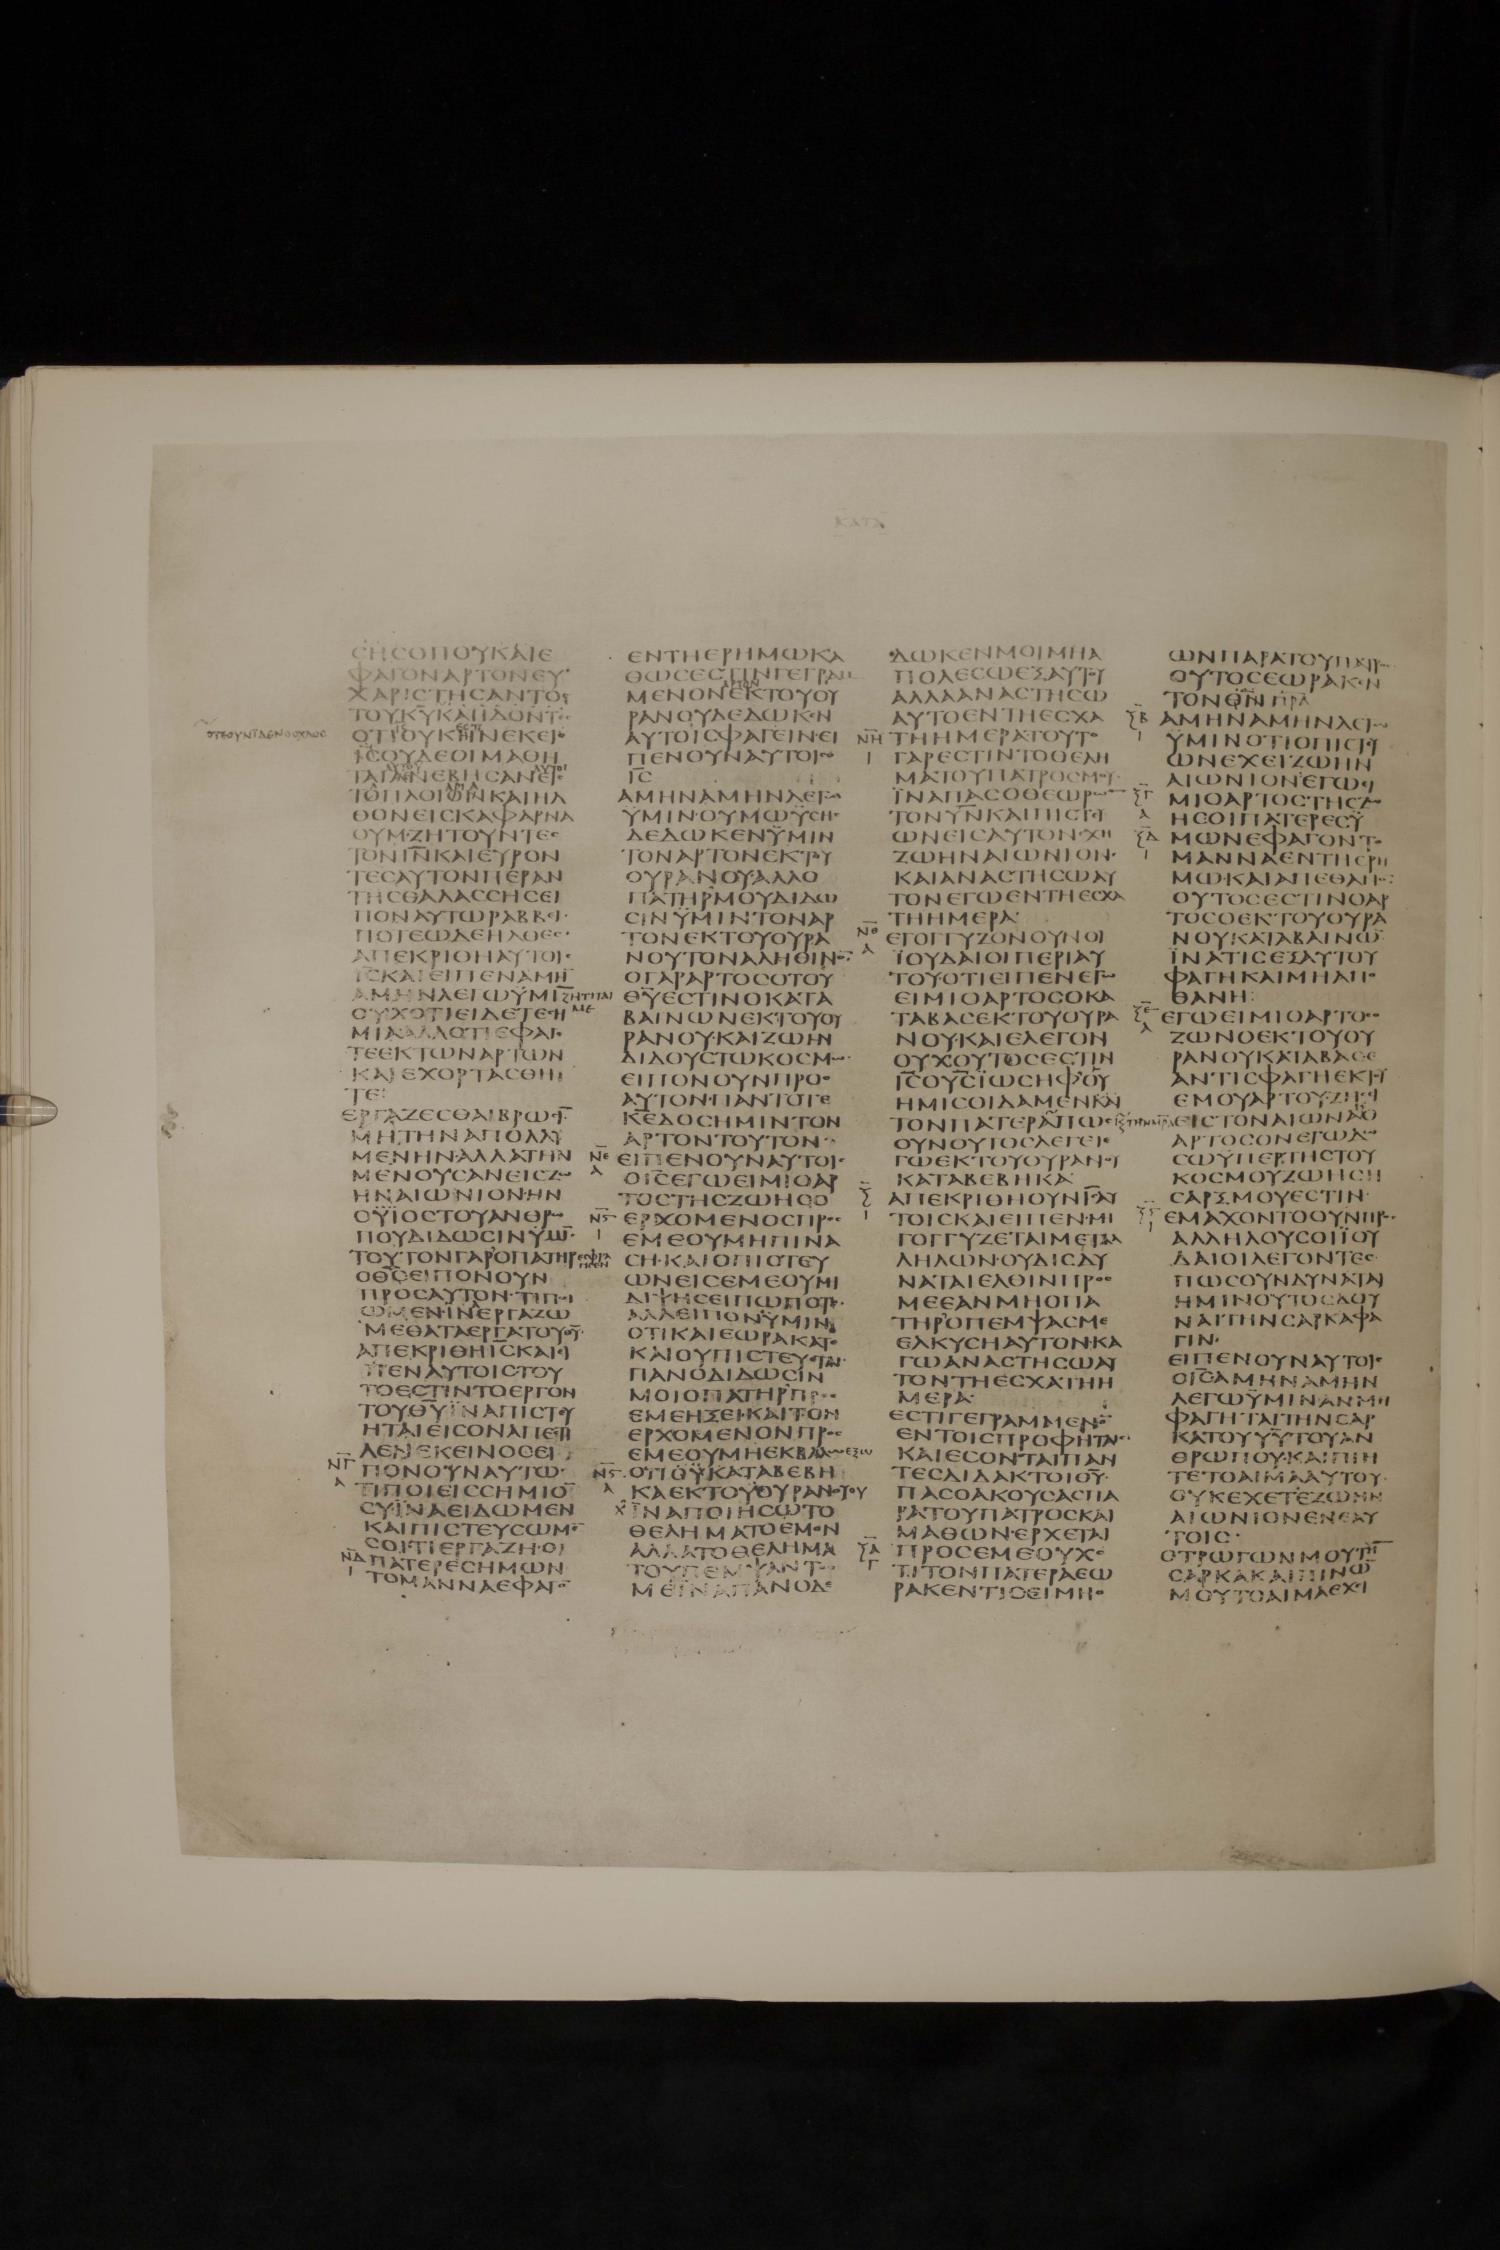 ΚΑΤΑ
ΦΑΓΟΝΑΡΤΟΝΕΥ
ΧΑΡΙCΤΗCΑΝΤΟC
ΙCΟΥΔΕΟΙΜΑΘΗ
ΘΟΝΕΙCΚΑΦΑΡΝΑ
ΟΥΜ·ΖΗΤΟΥΝΤΕC
ΤΟΝΙΝΚΑΙΕΥΡΟΝ
ΤΕCΑΥΤΟΝΠΕΡΑΝ
ΤΗCΘΑΛΑCCΗCΕΙ
ΠΟΝΑΥΤΩΡΑΒΒΕΙ·
ΠΟΤΕΩΔΕΗΛΘΕC·
ΑΠΕΚΡΙΘΗΑΥΤΟΙC
ΙCΚΑΙΕΙΠΕΝΑΜΗ
ΑΜΗΝΛΕΓΩΥΜΙ
ΤΕΕΚΤΩΝΑΡΤΩΝ
ΚΑΙΕΧΟΡΤΑCΘΗ
ΤΕ:
ΕΡΓΑΖΕCΘΑΙΒΡΩCΙ
ΜΗΤΗΝΑΠΟΛΛΥ
ΜΕΝΗΝ·ΑΛΛΑΤΗΝ
ΜΕΝΟΥCΑΝΕΙCΖΩ
ΗΝΑΙΩΝΙΟΝ·ΗΝ
ΟΫΙΟCΤΟΥΑΝΘΡΩ
ΠΟΥΔΙΔΩCΙΝΫΜΙ
ΤΟΥΤΟΝΓΑΡΟΠΑΤΗΡ
ΟΘCΕΙΠΟΝΟΥΝ
ΠΡΟCΑΥΤΟΝ·ΤΙΠΟΙ
ΩΜΕΝ·ΙΝΕΡΓΑΖΩ
ΜΕΘΑΤΑΕΡΓΑΤΟΥΘΥ
ΑΠΕΚΡΙΘΗΙCΚΑΙΕΙ
ΠΕΝΑΥΤΟΙCΤΟΥ
ΤΟΕCΤΙΝΤΟΕΡΓΟΝ
ΤΟΥΘΥΪΝΑΠΙCΤΕΥ
ΗΤΑΙΕΙCΟΝΑΠΕCΤΙ
ΛΕΝΕΚΕΙΝΟCΕΙ
ΠΟΝΟΥΝΑΥΤΩ·
ΤΙΠΟΙΕΙCCΗΜΙΟ
CΥΪΝΑΕΙΔΩΜΕΝ
ΚΑΙΠΙCΤΕΥCΩΜΕ
CΟΙ·ΤΙΕΡΓΑΖΗ·ΟΙ
ΠΑΤΕΡΕCΗΜΩΝ
ΤΟΜΑΝΝΑΕΦΑΓΟ
ΕΝΤΗΕΡΗΜΩΚΑ
ΘΩCΕCΤΙΝΓΕΓΡΑΜ
ΜΕΝΟΝΕΚΤΟΥΟΥ
ΡΑΝΟΥΔΕΔΩΚΕΝ
ΑΥΤΟΙCΦΑΓΕΙΝ·ΕΙ
ΠΕΝΟΥΝΑΥΤΟΙC
ΙC
ΑΜΗΝΑΜΗΝΛΕΓΩ
ΫΜΙΝ·ΟΥΜΩΫCΗC
ΔΕΔΩΚΕΝΫΜΙΝ
ΤΟΝΑΡΤΟΝΕΚΤΟΥ
ΟΥΡΑΝΟΥ·ΑΛΛΟ
ΠΑΤΗΡΜΟΥΔΙΔΩ
CΙΝΫΜΙΝΤΟΝΑΡ
ΤΟΝΕΚΤΟΥΟΥΡΑ
ΝΟΥΤΟΝΑΛΗΘΙΝΟ
ΟΓΑΡΑΡΤΟCΟΤΟΥ
ΘΥΕCΤΙΝΟΚΑΤΑ
ΒΑΙΝΩΝΕΚΤΟΥΟΥ
ΡΑΝΟΥ·ΚΑΙΖΩΗΝ
ΔΙΔΟΥCΤΩΚΟCΜΩ
ΕΙΠΟΝΟΥΝΠΡΟC
ΑΥΤΟΝ·ΠΑΝΤΟΤΕ
ΚΕΔΟCΗΜΙΝΤΟΝ
ΑΡΤΟΝΤΟΥΤΟΝ
ΕΙΠΕΝΟΥΝΑΥΤΟΙC
ΟΙCΕΓΩΕΙΜΙΟΑΡ
ΤΟCΤΗCΖΩΗCΟ
ΕΡΧΟΜΕΝΟCΠΡΟC
ΕΜΕΟΥΜΗΠΙΝΑ
CΗ·ΚΑΙΟΠΙCΤΕΥ
ΩΝΕΙCΕΜΕΟΥΜΙ
ΔΙΨΗCΕΙΠΩΠΟΤΕ·
ΑΛΛΕΙΠΟΝΫΜΙΝ
ΟΤΙΚΑΙΕΩΡΑΚΑΤΕ
ΚΑΙΟΥΠΙCΤΕΥΕΤΑΙ
ΠΑΝΟΔΙΔΩCΙΝ
ΜΟΙΟΠΑΤΗΡΠΡΟC
ΕΜΕΗΞΕΙ·ΚΑΙΤΟΝ
ΕΡΧΟΜΕΝΟΝΠΡΟC
ΕΜΕΟΥΜΗΕΚΒΑΛΩΕΞΩ
ΟΤΙΟΥΚΑΤΑΒΕΒΗ
ΚΑΕΚΤΟΥΟΥΡΑΝΟΥΟΥ
ΪΝΑΠΟΙΗCΩΤΟ
ΘΕΛΗΜΑΤΟΕΜΟΝ
ΑΛΛΑΤΟΘΕΛΗΜΑ
ΤΟΥΠΕΜΨΑΝΤΟC
ΜΕΪΝΑΠΑΝΟΔΕ
ΔΩΚΕΝΜΟΙΜΗΑ
ΠΟΛΕCΩΕΞΑΥΤΟΥ
ΑΛΛΑΑΝΑCΤΗCΩ
ΑΥΤΟΕΝΤΗΕCΧΑ
ΤΗΗΜΕΡΑ·ΤΟΥΤΟ
ΓΑΡΕCΤΙΝΤΟΘΕΛΗ
ΜΑΤΟΥΠΑΤΡΟCΜΟΥ
ΪΝΑΠΑCΟΘΕΩΡΩ
ΤΟΝΥΝΚΑΙΠΙCΤΕΥ
ΩΝΕΙCΑΥΤΟΝ·ΕΧΗ
ΖΩΗΝΑΙΩΝΙΟΝ·
ΚΑΙΑΝΑCΤΗCΩΑΥ
ΤΟΝΕΓΩΕΝΤΗΕCΧΑ
ΤΗΗΜΕΡΑ·
ΕΓΟΓΓΥΖΟΝΟΥΝΟΙ
ΪΟΥΔΑΙΟΙΠΕΡΙΑΥ
ΤΟΥ·ΟΤΙΕΙΠΕΝΕΓΩ
ΕΙΜΙΟΑΡΤΟCΟΚΑ
ΤΑΒΑCΕΚΤΟΥΟΥΡΑ
ΝΟΥ·ΚΑΙΕΛΕΓΟΝ
ΟΥΧΟΥΤΟCΕCΤΙΝ
ΙCΟΥCΪΩCΗΦ·ΟΥ
ΗΜΙCΟΙΔΑΜΕΝΚΑΙ
ΤΟΝΠΑΤΕΡΑΠΩC
ΟΥΝΟΥΤΟCΛΕΓΕΙΕ
ΓΩΕΚΤΟΥΟΥΡΑΝΟΥ
ΚΑΤΑΒΕΒΗΚΑ·
ΑΠΕΚΡΙΘΗΟΥΝΙCΑΥ
ΤΟΙCΚΑΙΕΙΠΕΝ·ΜΙ
ΓΟΓΓΥΖΕΤΑΙΜΕΤΑΛ
ΛΗΛΩΝ·ΟΥΔΙCΔΥ
ΝΑΤΑΙΕΛΘΙΝΠΡΟC
ΜΕΕΑΝΜΗΟΠΑ
ΤΗΡΟΠΕΜΨΑCΜΕ
ΕΛΚΥCΗΑΥΤΟΝ·ΚΑ
ΓΩΑΝΑCΤΗCΩΑΥ
ΤΟΝΤΗΕCΧΑΤΗΗ
ΜΕΡΑ·
ΕCΤΙΓΕΓΡΑΜΜΕΝΟ
ΕΝΤΟΙCΠΡΟΦΗΤΑΙC
ΚΑΙΕCΟΝΤΑΙΠΑΝ
ΤΕCΔΙΔΑΚΤΟΙΘΥ·
ΠΑCΟΑΚΟΥCΑCΠΑ
ΡΑΤΟΥΠΑΤΡΟCΚΑΙ
ΜΑΘΩΝ·ΕΡΧΕΤΑΙ
ΠΡΟCΕΜΕΟΥΧΟ
ΤΙΤΟΝΠΑΤΕΡΑΕΩ
ΡΑΚΕΝΤΙCΕΙΜΗΟ
ΟΥΤΟCΕΩΡΑΚΕΝ
ΑΜΗΝΑΜΗΝΛΕΓΩ
ΫΜΙΝΟΤΙΟΠΙCΤΕΥ
ΩΝΕΧΕΙΖΩΗΝ
ΑΙΩΝΙΟΝ·ΕΓΩΕΙ
ΜΙΟΑΡΤΟCΤΗCΖΩ
ΗCΟΙΠΑΤΕΡΕCΫ
ΜΩΝΕΦΑΓΟΝΤΟ
ΜΑΝΝΑΕΝΤΗΕΡΗ
ΜΩ·ΚΑΙΑΠΕΘΑΝΟ
ΟΥΤΟCΕCΤΙΝΟΑΡ
ΤΟCΟΕΚΤΟΥΟΥΡΑ
ΝΟΥΚΑΤΑΒΑΙΝΩ
ΪΝΑΤΙCΕΞΑΥΤΟΥ
ΦΑΓΗΚΑΙΜΗΑΠΟ
ΘΑΝΗ:
ΕΓΩΕΙΜΙΟΑΡΤΟCΟ
ΖΩΝΟΕΚΤΟΥΟΥ
ΡΑΝΟΥΚΑΤΑΒΑCΕ
ΑΝΤΙCΦΑΓΗΕΚΤΟΥ
ΕΜΟΥΑΡΤΟΥ·ΖΗCΕΙ
ΕΙCΤΟΝΑΙΩΝΑ
ΑΡΤΟCΟΝΕΓΩΔΩ
CΩΫΠΕΡΤΗCΤΟΥ
ΚΟCΜΟΥΖΩΗCΗ
CΑΡΞΜΟΥΕCΤΙΝ·
ΕΜΑΧΟΝΤΟΟΥΝΠΡΟC
ΑΛΛΗΛΟΥCΟΙΪΟΥ
ΔΑΙΟΙΛΕΓΟΝΤΕC
ΠΩCΟΥΝΔΥΝΑΤΑΙ
ΗΜΙΝΟΥΤΟCΔΟΥ
ΝΑΙΤΗΝCΑΡΚΑΦΑ
ΓΙΝ·
ΕΙΠΕΝΟΥΝΑΥΤΟΙC
ΟΙCΑΜΗΝΑΜΗΝ
ΛΕΓΩΫΜΙΝ·ΑΝΜΗ
ΦΑΓΗΤΑΙΤΗΝCΑΡ
ΚΑΤΟΥΥΥΤΟΥΑΝ
ΘΡΩΠΟΥ·ΚΑΙΠΙΗ
ΤΕΤΟΑΙΜΑΑΥΤΟΥ·
ΟΥΚΕΧΕΤΕΖΩΗΝ
ΑΙΩΝΙΟΝΕΝΕΑΥ
ΤΟΙC·
ΟΤΡΩΓΩΝΜΟΥΤΗ
CΑΡΚΑΚΑΙΠΙΝΩ
ΜΟΥΤΟΑΙΜΑΕΧΕΙ